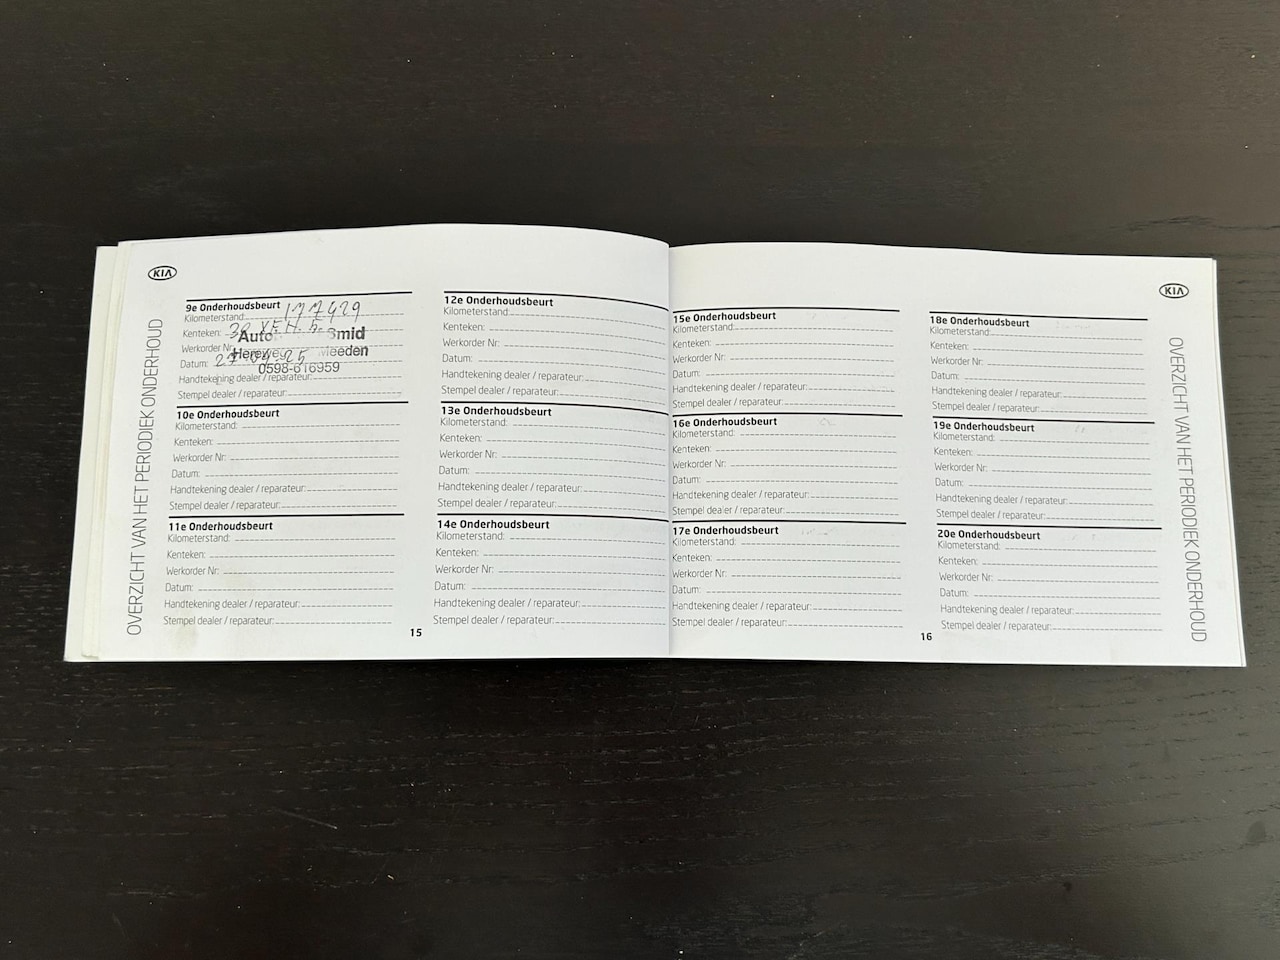 KIA
OVERZICHT VAN HET PERIODIEK ONDERHOUD
9e Onderhoudsbeurt
Kilometerstand: 177429
Kenteken:
Werkorder Nr:
Datum:
Auto Smid
Hereweg Meeden
0598-616959
Handtekening dealer / reparateur:
Stempel dealer / reparateur:
10e Onderhoudsbeurt
Kilometerstand:
Kenteken:
Werkorder Nr:
Datum:
Handtekening dealer / reparateur:
Stempel dealer / reparateur:
11e Onderhoudsbeurt
Kilometerstand:
Kenteken:
Werkorder Nr:
Datum:
Handtekening dealer / reparateur:
Stempel dealer / reparateur:
12e Onderhoudsbeurt
Kilometerstand:
Kenteken:
Werkorder Nr:
Datum:
Handtekening dealer / reparateur:
Stempel dealer / reparateur:
13e Onderhoudsbeurt
Kilometerstand:
Kenteken:
Werkorder Nr:
Datum:
Handtekening dealer / reparateur:
Stempel dealer / reparateur:
14e Onderhoudsbeurt
Kilometerstand:
Kenteken:
Werkorder Nr:
Datum:
Handtekening dealer / reparateur:
Stempel dealer / reparateur:
15
15e Onderhoudsbeurt
Kilometerstand:
Kenteken:
Werkorder Nr:
Datum:
Handtekening dealer / reparateur:
Stempel dealer / reparateur:
16e Onderhoudsbeurt
Kilometerstand:
Kenteken:
Werkorder Nr:
Datum:
Handtekening dealer / reparateur:
Stempel dealer / reparateur:
17e Onderhoudsbeurt
Kilometerstand:
Kenteken:
Werkorder Nr:
Datum:
Handtekening dealer / reparateur:
Stempel dealer / reparateur:
18e Onderhoudsbeurt
Kilometerstand:
Kenteken:
Werkorder Nr:
Datum:
Handtekening dealer / reparateur:
Stempel dealer / reparateur:
19e Onderhoudsbeurt
Kilometerstand:
Kenteken:
Werkorder Nr:
Datum:
Handtekening dealer / reparateur:
Stempel dealer / reparateur:
20e Onderhoudsbeurt
Kilometerstand:
Kenteken:
Werkorder Nr:
Datum:
Handtekening dealer / reparateur:
Stempel dealer / reparateur:
16
KIA
OVERZICHT VAN HET PERIODIEK ONDERHOUD